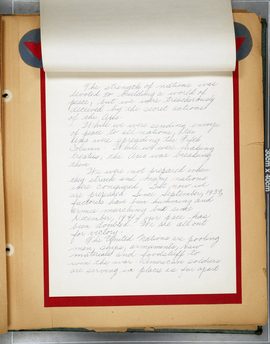 The strength of nations was
devoted to building a world of
peace, but we were treacherously
deceived by the secret actions
of the Axis.
While we were sending envoys
of peace to all nations, the
Axis were spreading the Fifth
Column. While we were making
treaties, the Axis was breaking
them.
We were not prepared when
they struck and many nations
were conquered. But now we
are prepared. Since September, 1939,
factories have been humming and
armies marching but since
December, 1941 our pace has
been doubled. We are all out
for victory.
The United Nations are pooling
men, ships, armaments, raw
materials and foodstuffs to
win the war. American soldiers
are serving in places so far apart